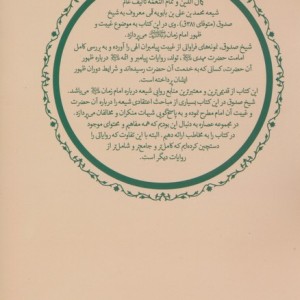 کمال الدین و تمام النعمة تألیف عالم
شیعه محمد بن علی بن بابویه قمی معروف به شیخ
صدوق (متوفای ۳۸۱ق). وی در این کتاب به موضوع غیبت و
ظهور امام زمان می‌پردازد.
شیخ صدوق، نمونه‌های فراوانی از غیبت پیامبران الهی را آورده و به بررسی کامل
امامت حضرت مهدی، تولد، روایات پیامبر و ائمه درباره ظهور
آن حضرت، کسانی که به خدمت آن حضرت رسیده‌اند و شرایط دوران ظهور
ایشان پرداخته است.
این کتاب از قدیمی‌ترین و معتبرترین منابع روایی شیعه درباره امام زمان می‌باشد.
شیخ صدوق در این کتاب بسیاری از مباحث اعتقادی شیعه را درباره آن حضرت
و غیبت آن امام مطرح نموده و به پاسخ‌گویی شبهات منکران و مخالفان می‌پردازد.
در مجموعه عصاره به دنبال این بودیم که همه مفاهیم و محتوای موجود
در کتاب را به مخاطب ارائه دهیم. البته با این تفاوت که روایاتی را
دستچین کرده‌ایم که کامل‌تر و جامع‌تر و شامل‌تر از
روایات دیگر است.